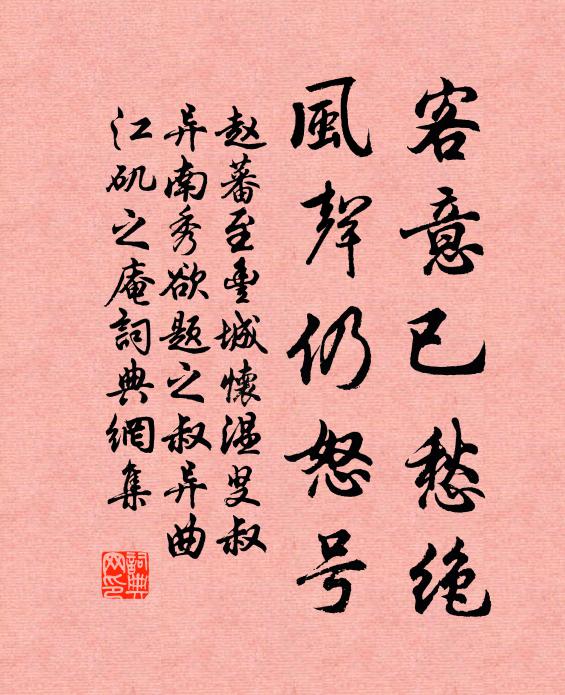 客意已愁绝
風聲仍怒号
赵蕃至豊城懷温叟叔
异南秀欲题之叔异曲
江矶之庵詞典網集
詞典网印